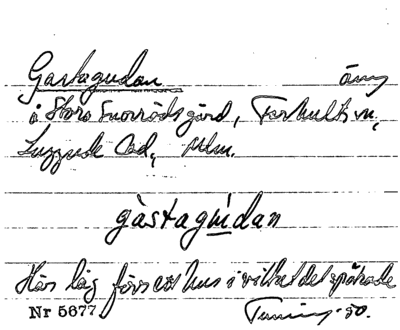 Gastagudan äng
å Stora Snorröds gård, Farhults sn,
Luggude hd, Mlm.
gàstagúdan
Här låg förr ett hus i vilket det spökade
Nr 5677 -30.